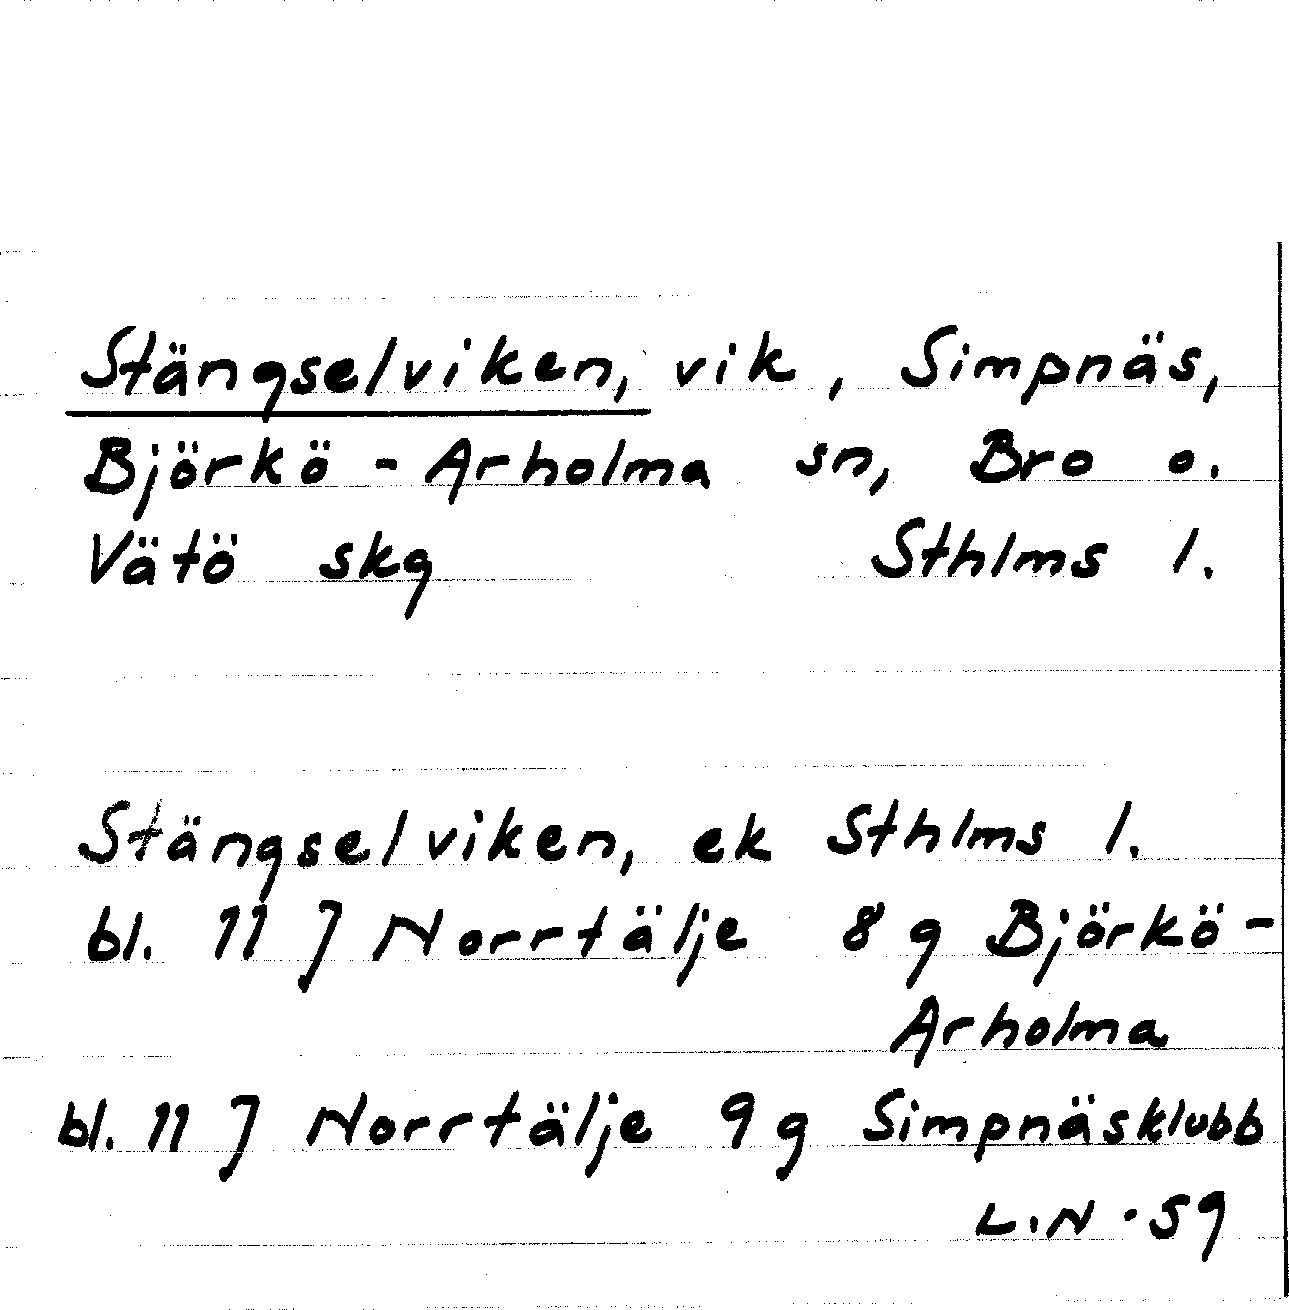 Stängselviken, vik, Simpnäs,
Björkö - Arholma sn, Bro o.
Vätö skg Sthlms l.
Stängselviken, ek Sthlms l.
bl. 11 J Norrtälje 8 g Björkö-
Arholma
bl. 11 J Norrtälje 9 g Simpnäsklubb
L.N. 59